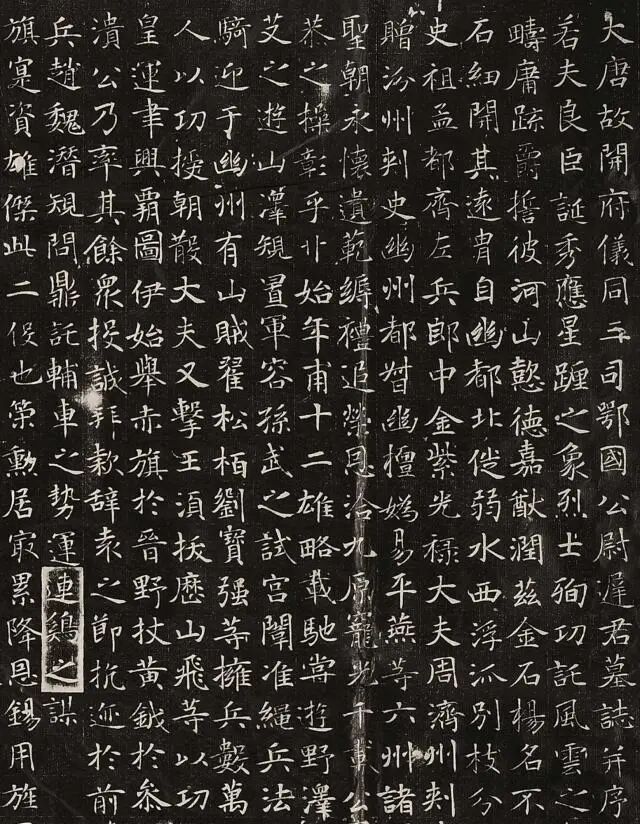 大唐故開府儀同三司鄂國公尉遲君墓誌并序
若夫良臣誕秀應星躔之象烈士殉功託風雲之
疇庸疏爵誓彼河山懿德嘉猷潤茲金石楊名不
石細開其遠胄自幽都北徙弱水西浮派別枝分
史祖孟都齊左兵郎中金紫光祿大夫周濟州刺
贈汾州刺史幽州都督幽檀媯易平燕等六州諸
聖朝永懷遺範縟禮追榮恩洽九原寵光千載公
恭之操彰乎丱始年甫十二雄略載馳嘗遊野澤
艾之遊山澤規置軍容孫武之試宮闈准繩兵法
騎迎于幽州有山賊翟松栢劉寶强等擁兵數萬
人以功授朝散大夫又擊王須拔歷山飛等以功
皇運聿興霸圖伊始舉赤旗於晉野杖黃鉞於參
潰公乃率其餘眾投誠拜款辭袁之節抗迹於前
兵趙魏潛規問鼎託輔車之勢運連鷄之謀
旗寔資雄傑此二役也策勳居冣累降恩錫用旌